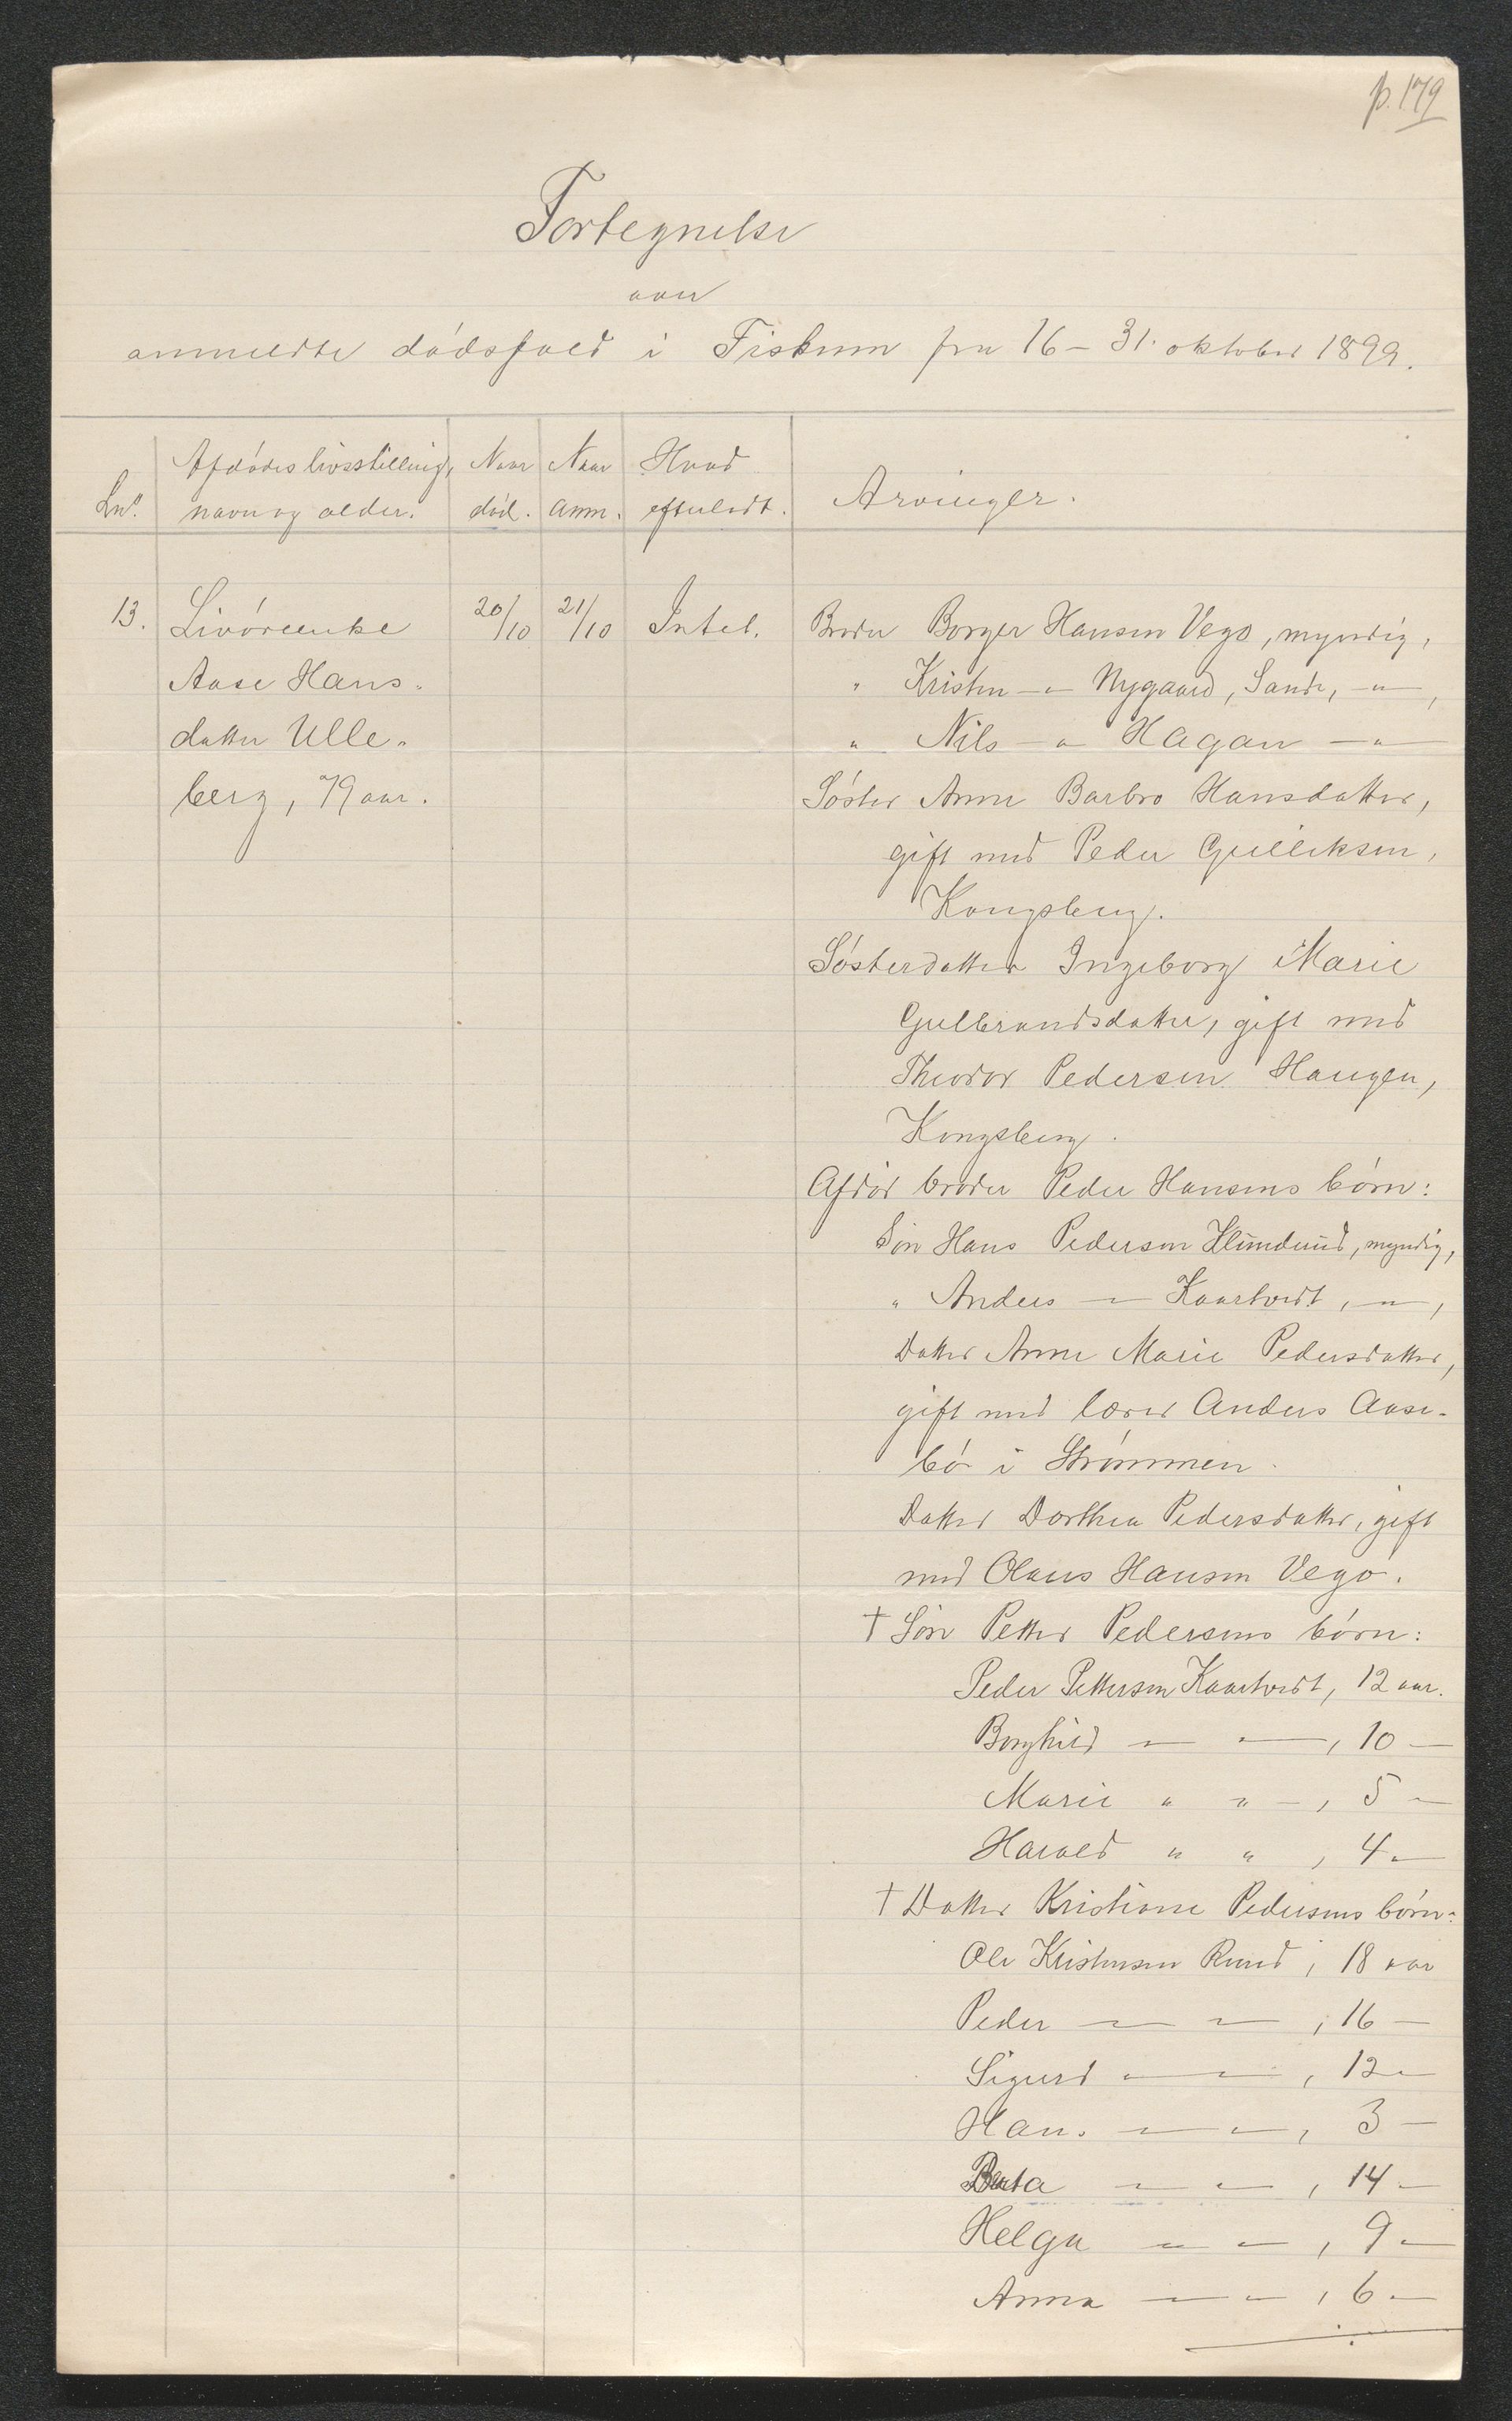 p. 179
Fortegnelse
over
anmeldte dødsfald i Fiskum fra 16 - 31. oktober 1899.
Lnº. Afdødes livsstilling, navn og alder. Naar død. Naar anm. Hvad efterladt. Arvinger.
13. Livørenke 20/10 21/10 Intet. Broder Borger Hansen Vego, myndig,
Aase Hans- " Kristen -"- Nygaard, Sande, -"-,
datter Ulle- " Nils -"- Hagan -"-
berg, 79 aar. Søster Anne Barbro Hansdatter,
gift med Peder Gulliksen,
Kongsberg.
Søsterdatter Ingeborg Marie
Gulbrandsdatter, gift med
Theodor Pedersen Haugen,
Kongsberg.
Afdød broder Peder Hansens børn:
Søn Hans Pedersen, myndig,
" Anders -"- Kaartvedt, -"-,
Datter Anne Marie Pedersdatter,
gift med lærer Anders Aase-
bø i Strømmen.
Datter Dorthea Pedersdatter, gift
med Olaus Hansen Vego.
† Søn Petter Pedersens børn:
Peder Pettersen Kaartvedt, 12 aar.
Borghild -"- -"-, 10 -
Marie " " -, 5 -
Harald " " , 4 -
† Datter Kristiane Pedersens børn:
Ole Kristensen Ruud, 18 aar
Peder -"- -"- , 16 -
Sigurd -"- -"- , 12 -
Hans -"- -"-, 3 -
Berta -"- -"- , 14 -
Helga -"- -"- , 9 -
Anna -"- -"- , 6 -